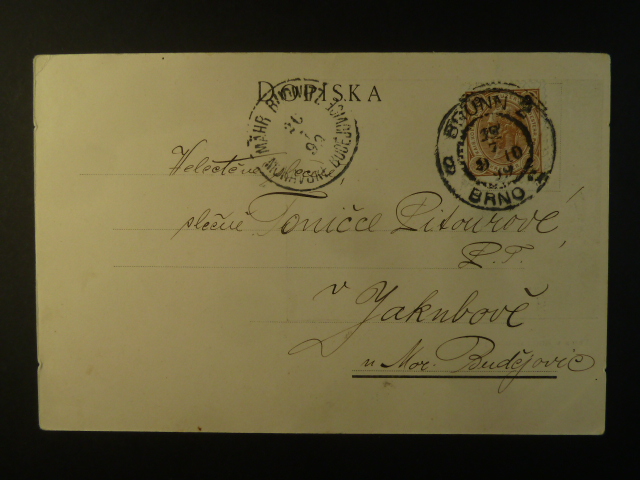 DOPISKA
MÄHR. BUDWITZ
MORAVSKÉ BUDĚJOVICE
BRÜNN 2
BRNO
Velectěné
slečně Toničce Pitourové
P.T.
v Jakubově
u Mor. Budějovic